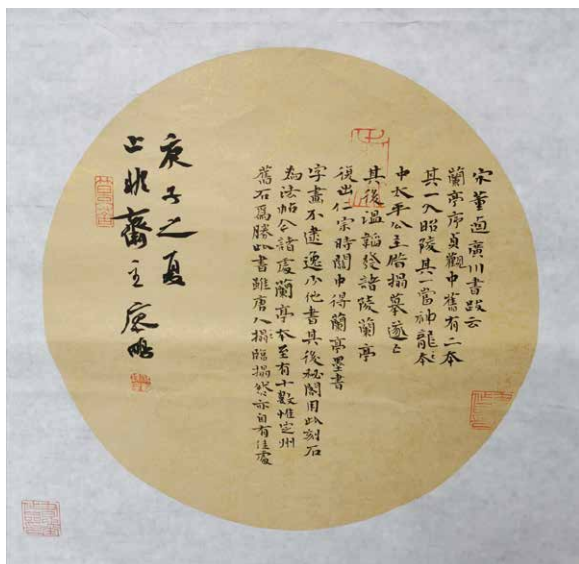 宋董逌廣川書跋云
蘭亭序貞觀中舊有二本
其一入昭陵其一當神龍本
中太平公主借搨摹遂亡
其後溫韜發諸陵蘭亭
復出仁宗時關中得蘭亭墨書
字畫不逮逸少他書其後秘閣用此刻石
為法帖今諸處蘭亭本至有十數惟定州
舊石爲勝此書雖唐人摸臨搨然亦自有佳處
庚子之夏
止非齋主